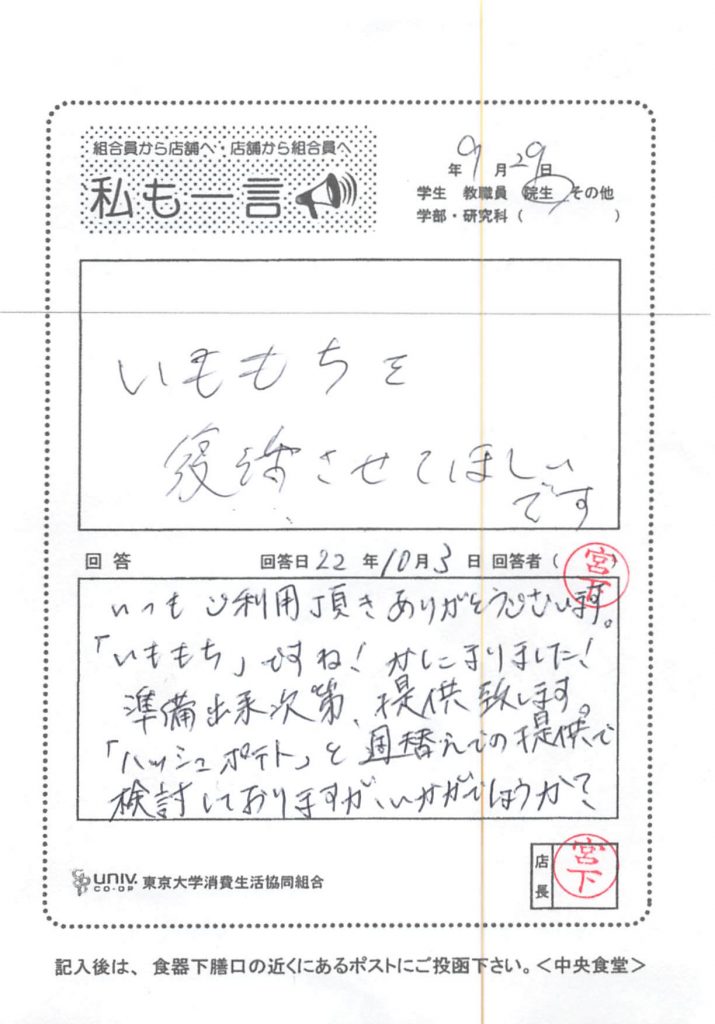 組合員から店舗へ・店舗から組合員へ
私も一言
年 9 月 29 日
学生 教職員 院生 その他
学部・研究科（ ）
いももちを
復活させてほしい
です
回答 回答日 22 年 10 月 3 日 回答者（ 宮下 ）
いつもご利用頂きありがとうございます。
「いももち」ですね！かしこまりました！
準備出来次第、提供致します。
「ハッシュポテト」と週替えでの提供で
検討しておりますが、いかがでしょうか？
UNIV. CO-OP 東京大学消費生活協同組合
店長 宮下
記入後は、食器下膳口の近くにあるポストにご投函下さい。＜中央食堂＞